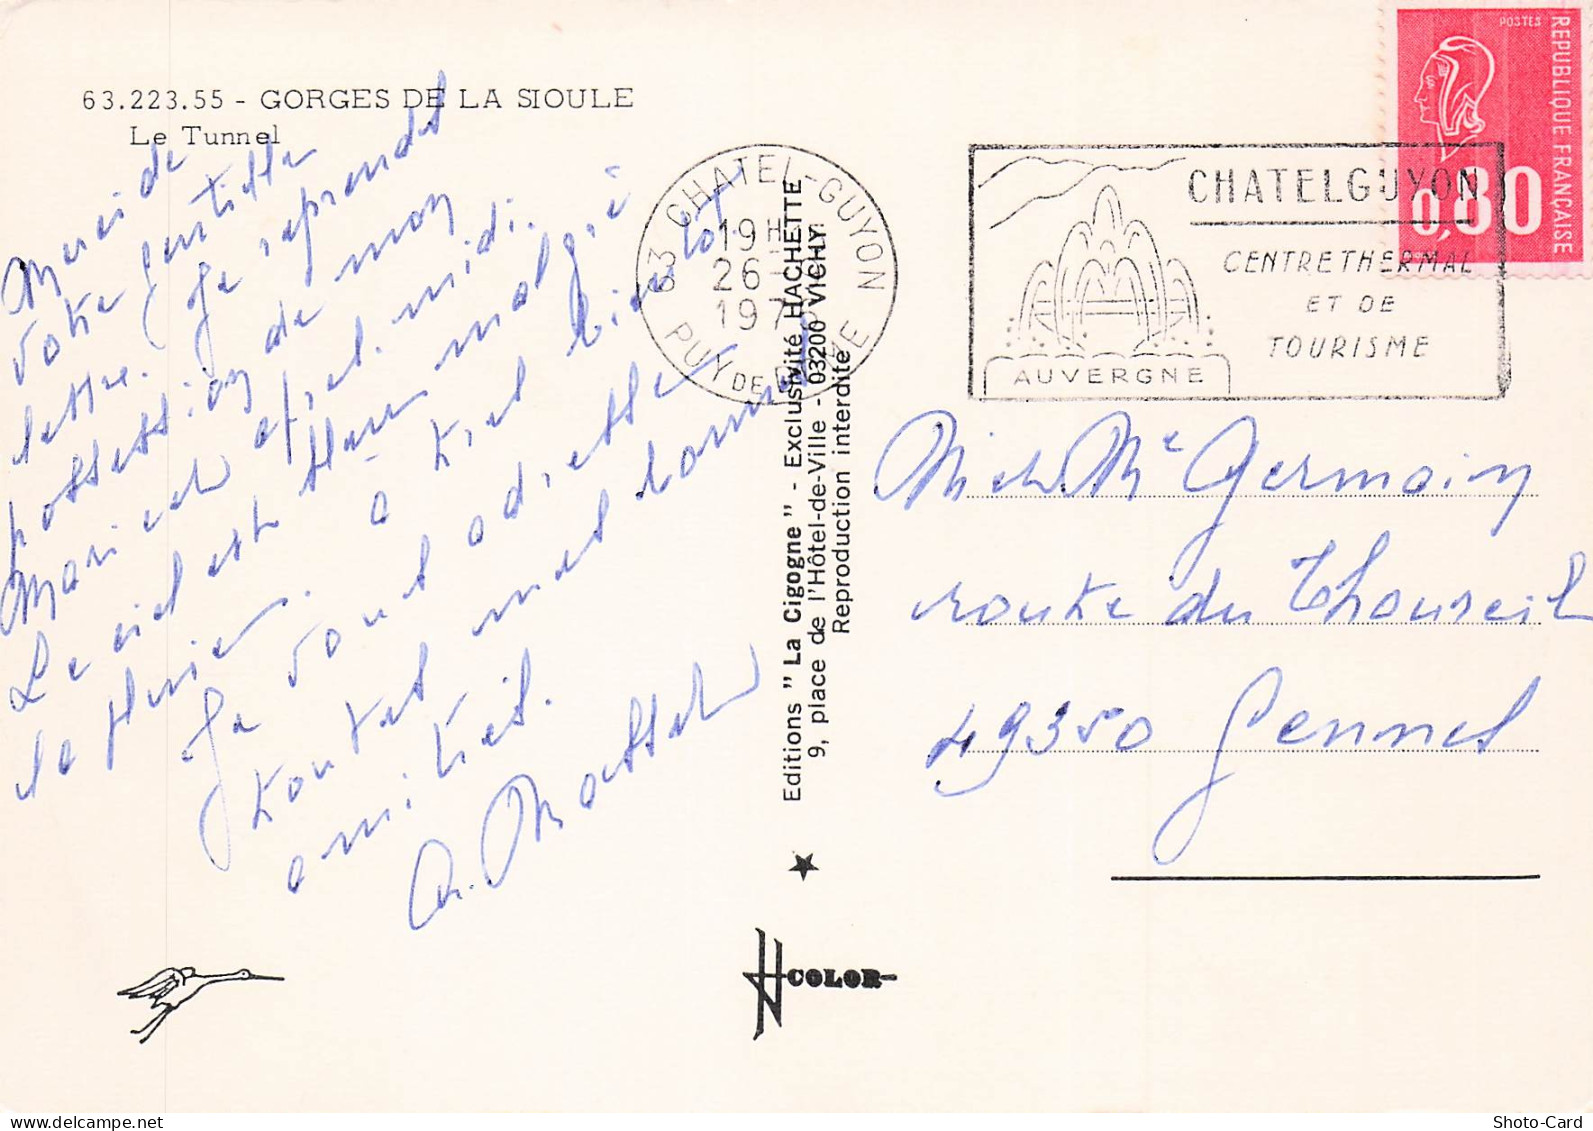 63.223.55 - GORGES DE LA SIOULE
Le Tunnel
Merci de
votre gentille
lettre. Je reprendrai
possession de mon
cet après-midi.
Le ciel est bleu malgré
la pluie. à très bientôt
Je vous adresse
toutes mes bonnes
amitiés.
CHATEL-GUYON
19H
26-
197
63 PUY DE DOME
CHATELGUYON
CENTRE THERMAL
ET DE
TOURISME
AUVERGNE
POSTES
REPUBLIQUE FRANÇAISE
0,80
Editions "La Cigogne" - Exclusivité HACHETTE
9, place de l'Hôtel-de-Ville - 03200 VICHY
Reproduction interdite
COLOR
Mr et Me Germain
route du Thoureil
49350 Gennes
Shoto-Card